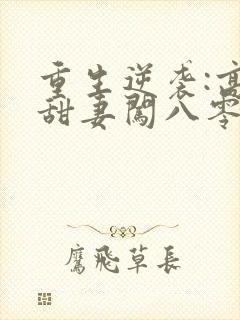 重生逆袭:高
甜妻闯八零
鹰飞草长